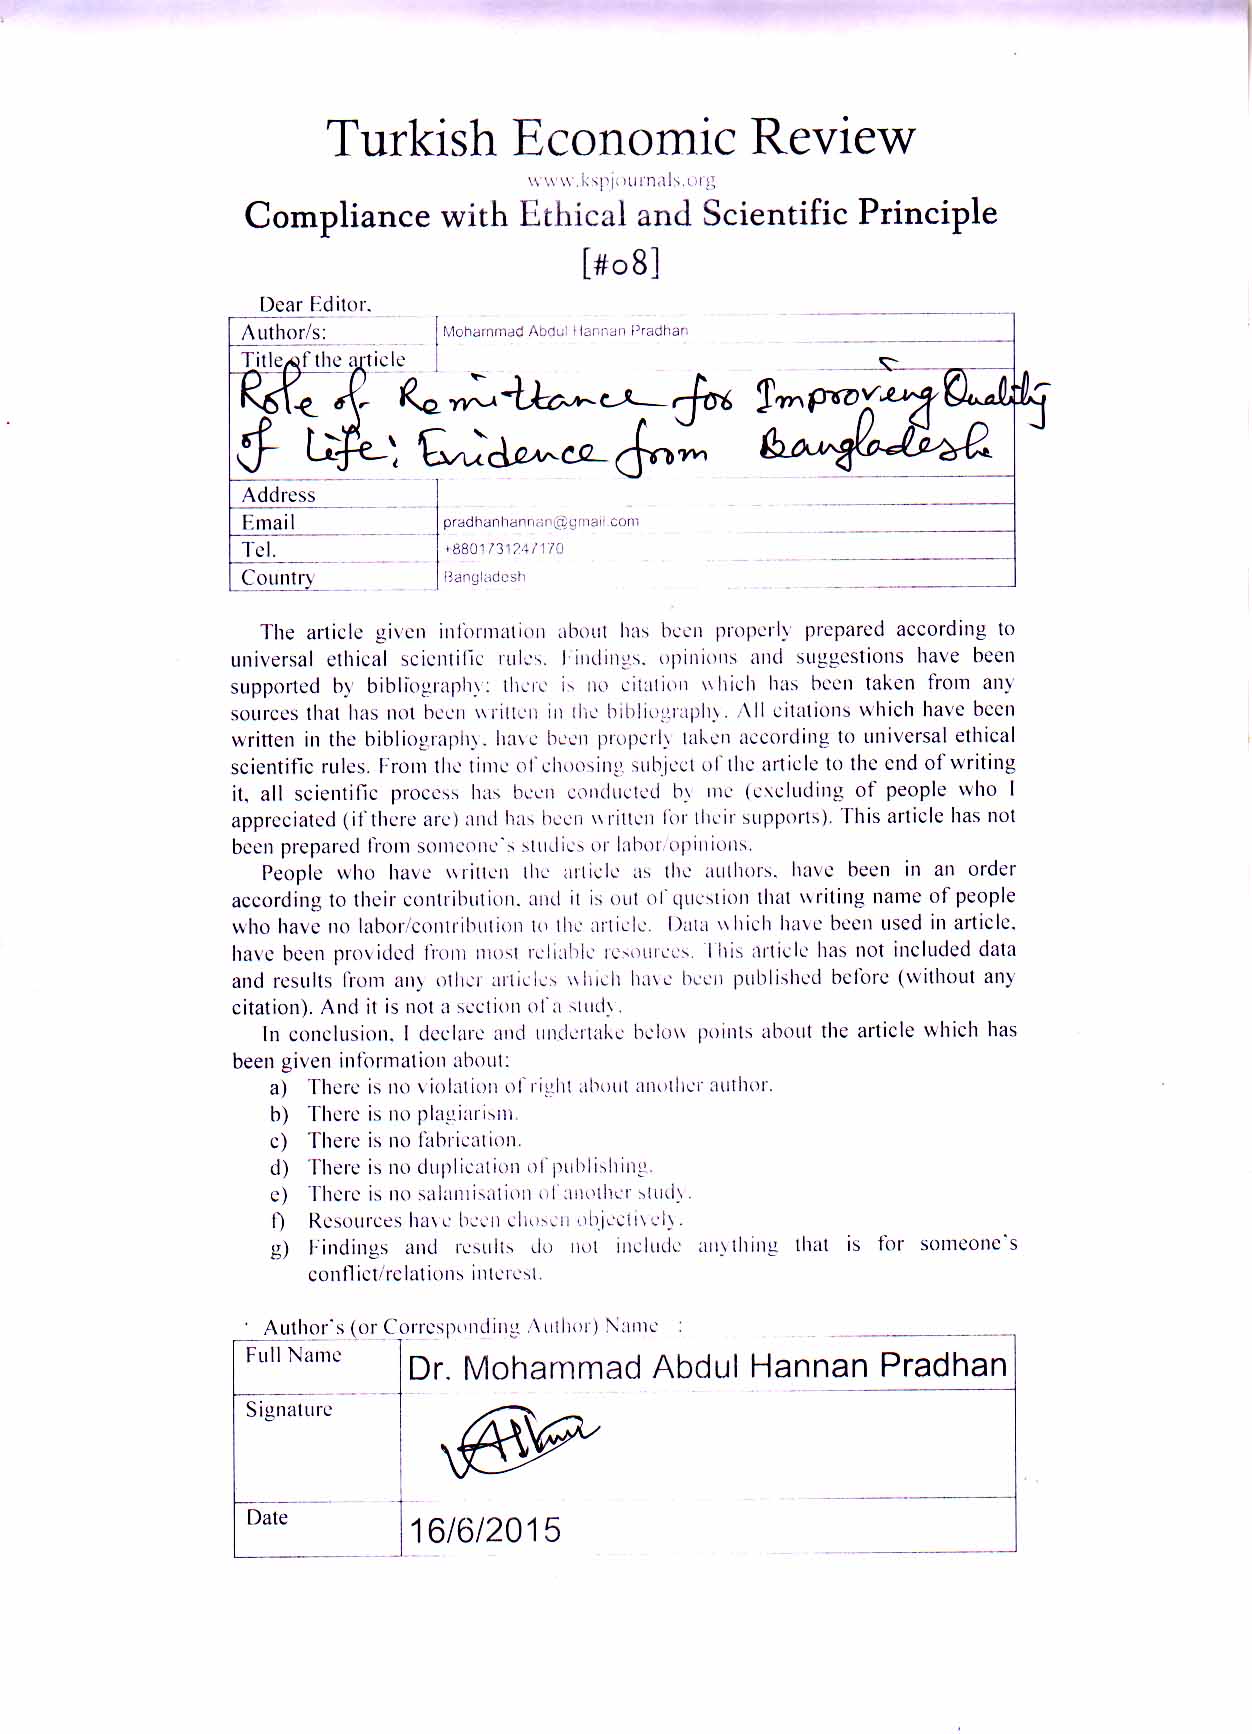 Turkish Economic Review
www.kspjournals.org
Compliance with Ethical and Scientific Principle
[#08]
Dear Editor,
Author/s: Mohammad Abdul Hannan Pradhan
Title of the article
Role of Remittance for Improving Quality
of Life: Evidence from Bangladesh
Address
Email pradhanhannan@gmail.com
Tel. +8801731247170
Country Bangladesh
The article given information about has been properly prepared according to
universal ethical scientific rules. Findings, opinions and suggestions have been
supported by bibliography; there is no citation which has been taken from any
sources that has not been written in the bibliography. All citations which have been
written in the bibliography, have been properly taken according to universal ethical
scientific rules. From the time of choosing subject of the article to the end of writing
it, all scientific process has been conducted by me (excluding of people who I
appreciated (if there are) and has been written for their supports). This article has not
been prepared from someone's studies or labor/opinions.
People who have written the article as the authors, have been in an order
according to their contribution, and it is out of question that writing name of people
who have no labor/contribution to the article. Data which have been used in article,
have been provided from most reliable resources. This article has not included data
and results from any other articles which have been published before (without any
citation). And it is not a section of a study.
In conclusion, I declare and undertake below points about the article which has
been given information about:
a) There is no violation of right about another author.
b) There is no plagiarism.
c) There is no fabrication.
d) There is no duplication of publishing.
e) There is no salamisation of another study.
f) Resources have been chosen objectively.
g) Findings and results do not include anything that is for someone's
conflict/relations interest.
Author's (or Corresponding Author) Name :
Full Name Dr. Mohammad Abdul Hannan Pradhan
Signature
Date 16/6/2015